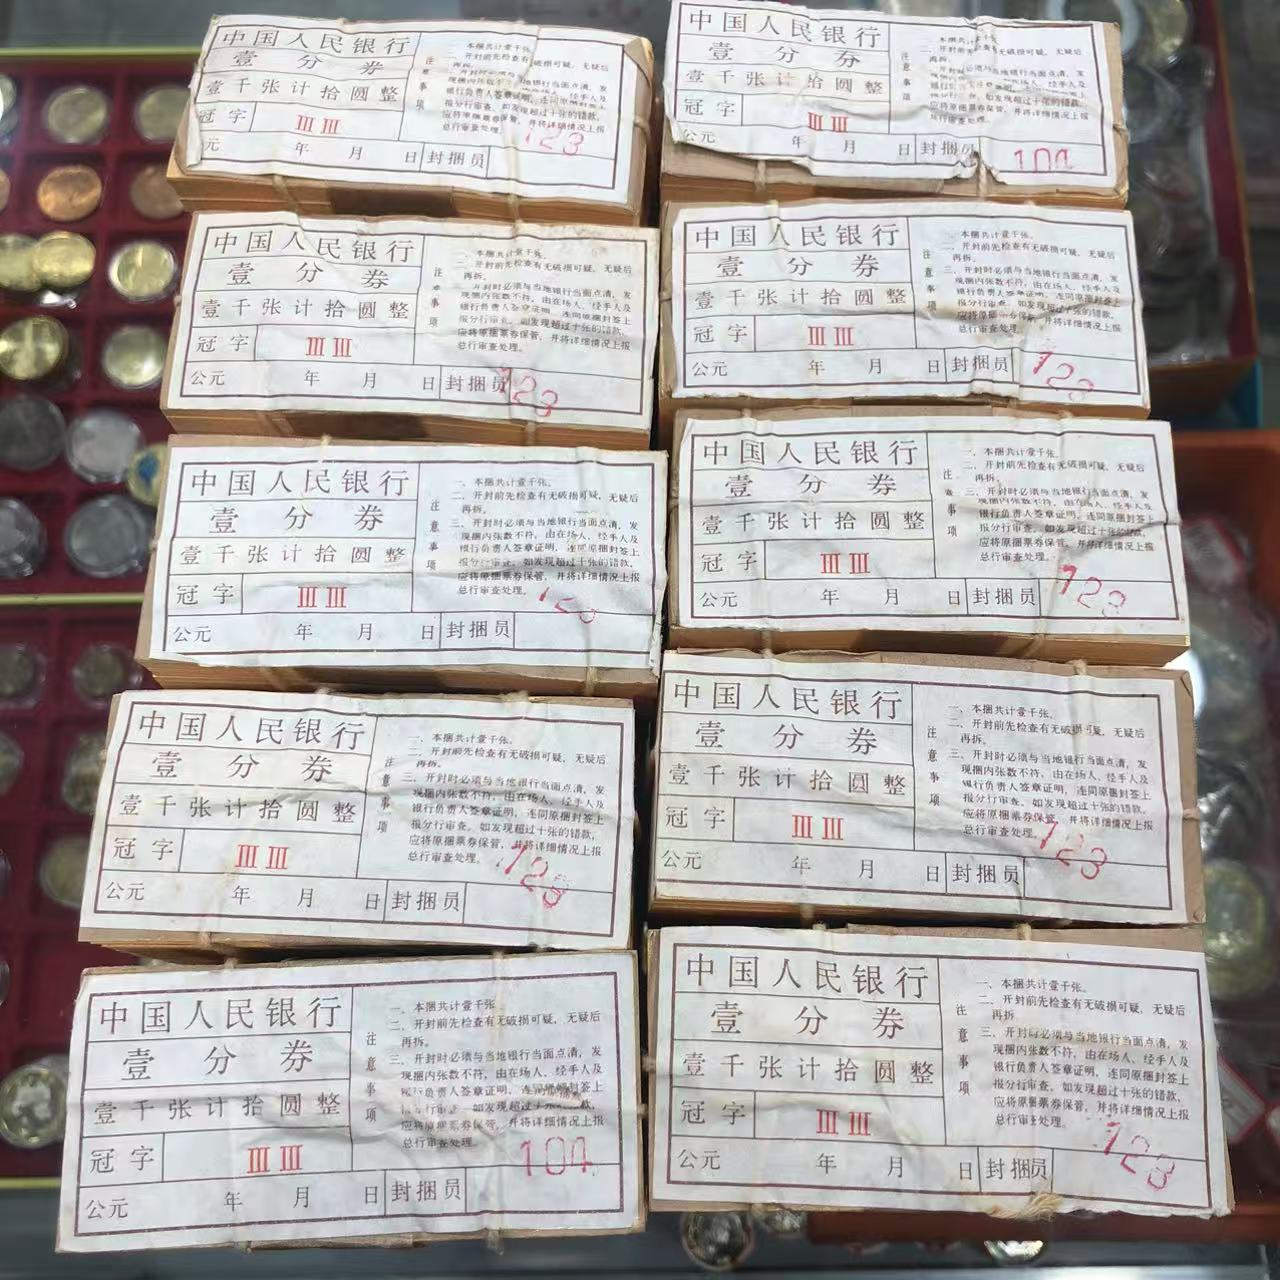 中国人民银行
壹分券
壹千张计拾圆整
冠字 III III
元 年 月 日 封捆员
注意事项
一、本捆共计壹千张。
二、开封前先检查有无破损可疑，无疑后再拆。
应将原捆票券保管，并将详细情况上报
总行审查处理。
123
中国人民银行
壹分券
壹千张计拾圆整
冠字 III III
公元 年 月 日 封捆员
注意事项
总行审查处理。
104
中国人民银行
壹分券
壹千张计拾圆整
冠字 III III
公元 年 月 日 封捆员
一、本捆共计壹千张。
二、开封前先检查有无破损可疑，无疑后
再拆。
三、开封时必须与当地银行当面点清，发
现捆内张数不符，由在场人、经手人及
应将原捆票券保管，并将详细情况上报
总行审查处理。
123
中国人民银行
壹分券
壹千张计拾圆整
冠字 III III
公元 年 月 日 封捆员
注意事项
一、本捆共计壹千张。
二、开封前先检查有无破损可疑，无疑后
再拆。
三、开封时必须与当地银行当面点清，发
现捆内张数不符，由在场人、经手人及
银行负责人签章证明，连同原捆封签上
报分行审查。如发现超过十张的错款，
应将原捆票券保管，并将详细情况上报
总行审查处理。
123
中国人民银行
壹分券
壹千张计拾圆整
冠字 III III
公元 年 月 日 封捆员
注意事项
一、本捆共计壹千张。
二、开封前先检查有无破损可疑，无疑后
再拆。
三、开封时必须与当地银行当面点清，发
现捆内张数不符，由在场人、经手人及
银行负责人签章证明，连同原捆封签上
报分行审查。如发现超过十张的错款，
应将原捆票券保管，并将详细情况上报
总行审查处理。
中国人民银行
壹分券
壹千张计拾圆整
冠字 III III
公元 年 月 日 封捆员
注意事项
一、本捆共计壹千张。
二、开封前先检查有无破损可疑，无疑后
再拆。
三、开封时必须与当地银行当面点清，发
现捆内张数不符，由在场人、经手人及
银行负责人签章证明，连同原捆封签上
报分行审查。如发现超过十张的错款，
应将原捆票券保管，并将详细情况上报
总行审查处理。
123
中国人民银行
壹分券
壹千张计拾圆整
冠字 III III
公元 年 月 日 封捆员
注意事项
一、本捆共计壹千张。
二、开封前先检查有无破损可疑，无疑后
再拆。
三、开封时必须与当地银行当面点清，发
现捆内张数不符，由在场人、经手人及
银行负责人签章证明，连同原捆封签上
报分行审查。如发现超过十张的错款，
应将原捆票券保管，并将详细情况上报
总行审查处理。
123
中国人民银行
壹分券
壹千张计拾圆整
冠字 III III
公元 年 月 日 封捆员
注意事项
一、本捆共计壹千张。
二、开封前先检查有无破损可疑，无疑后
再拆。
三、开封时必须与当地银行当面点清，发
现捆内张数不符，由在场人、经手人及
银行负责人签章证明，连同原捆封签上
报分行审查。如发现超过十张的错款，
应将原捆票券保管，并将详细情况上报
总行审查处理。
123
中国人民银行
壹分券
壹千张计拾圆整
冠字 III III
公元 年 月 日 封捆员
注意事项
一、本捆共计壹千张。
二、开封前先检查有无破损可疑，无疑后
再拆。
三、开封时必须与当地银行当面点清，发
现捆内张数不符，由在场人、经手人及
银行负责人签章证明，连同原捆封签上
应将原捆票券保管，并将详细情况上报
总行审查处理。
104
中国人民银行
壹分券
壹千张计拾圆整
冠字 III III
公元 年 月 日 封捆员
注意事项
一、本捆共计壹千张。
二、开封前先检查有无破损可疑，无疑后
再拆。
三、开封时必须与当地银行当面点清，发
现捆内张数不符，由在场人、经手人及
银行负责人签章证明，连同原捆封签上
报分行审查。如发现超过十张的错款，
应将原捆票券保管，并将详细情况上报
总行审查处理。
123